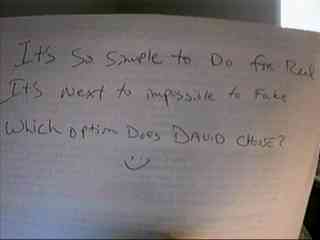 It's so simple to Do for Real
It's Next to impossible to Fake
Which option Does DAVID CHOSE?